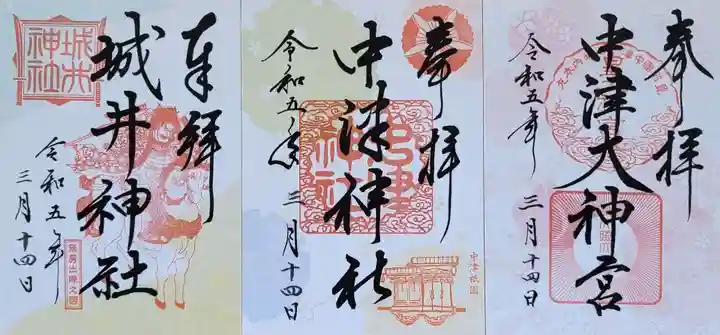 奉拝
城井神社
令和五年
三月十四日
城井
神社
奉拝
中津神社
令和五年
三月十四日
中津
神社
中津祇園
奉拝
中津大神宮
令和五年
三月十四日